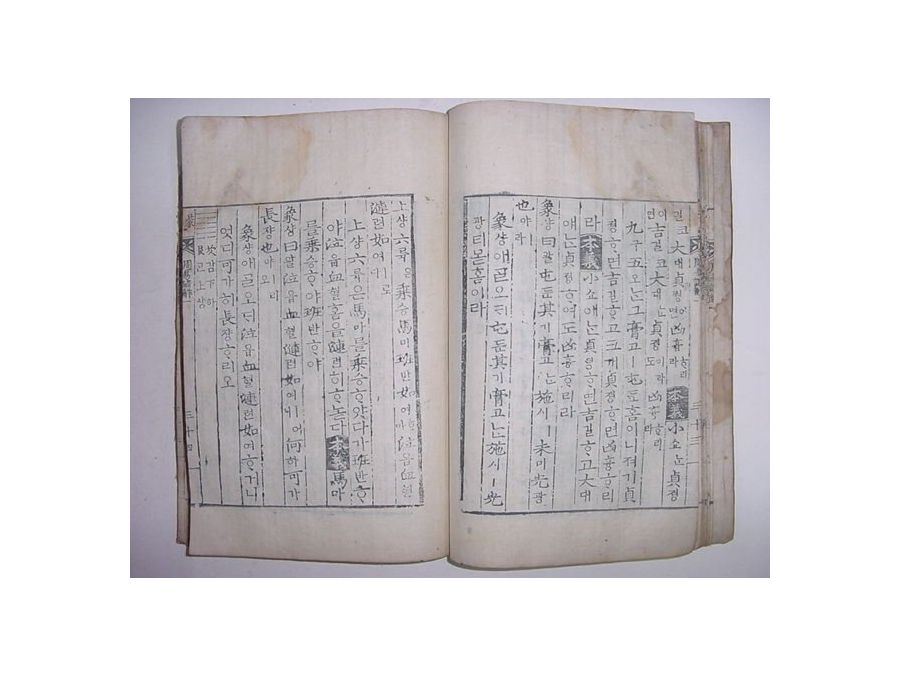 길코 大대貞졍이면 凶흉ᄒᆞ리라 本義 小쇼ᄂᆞᆫ 貞졍
이면 吉길코 大대ᄂᆞᆫ 貞졍이라도 凶흉ᄒᆞ리라
九구五오ᄂᆞᆫ 그 膏고ㅣ 屯둔홈이니 져기 貞
졍ᄒᆞ면 吉길ᄒᆞ고 크게 貞졍ᄒᆞ면 凶흉ᄒᆞ리
라 本義 小쇼애ᄂᆞᆫ 貞졍ᄒᆞ면 吉길ᄒᆞ고 大대
애ᄂᆞᆫ 貞졍ᄒᆞ여도 凶흉ᄒᆞ리라
象샹曰왈屯둔其기膏고ᄂᆞᆫ 施시ㅣ 未미光광
也야라
象샹애 ᄀᆞᆯ오ᄃᆡ 屯둔其기膏고ᄂᆞᆫ 施시ㅣ 光
광티 몯홈이라
三十三
上샹六륙은 乘승馬마班반如여ᄒᆞ야 泣읍血혈
漣련如여ㅣ로다
上샹六륙은 馬마를 乘승ᄒᆞ얏다가 班반ᄒᆞ
야 泣읍血혈홈을 漣련히 ᄒᆞ놋다 本義 馬마
를 乘승ᄒᆞ야 班반ᄒᆞ야
象샹曰왈泣읍血혈漣련如여ㅣ어니 何하可가
長쟝也야ㅣ리오
象샹애 ᄀᆞᆯ오ᄃᆡ 泣읍血혈漣련如여ᄒᆞ거니
엇디 可가히 長쟝ᄒᆞ리오
坎감下하
艮간上샹
蒙
周易諺解一
三十四